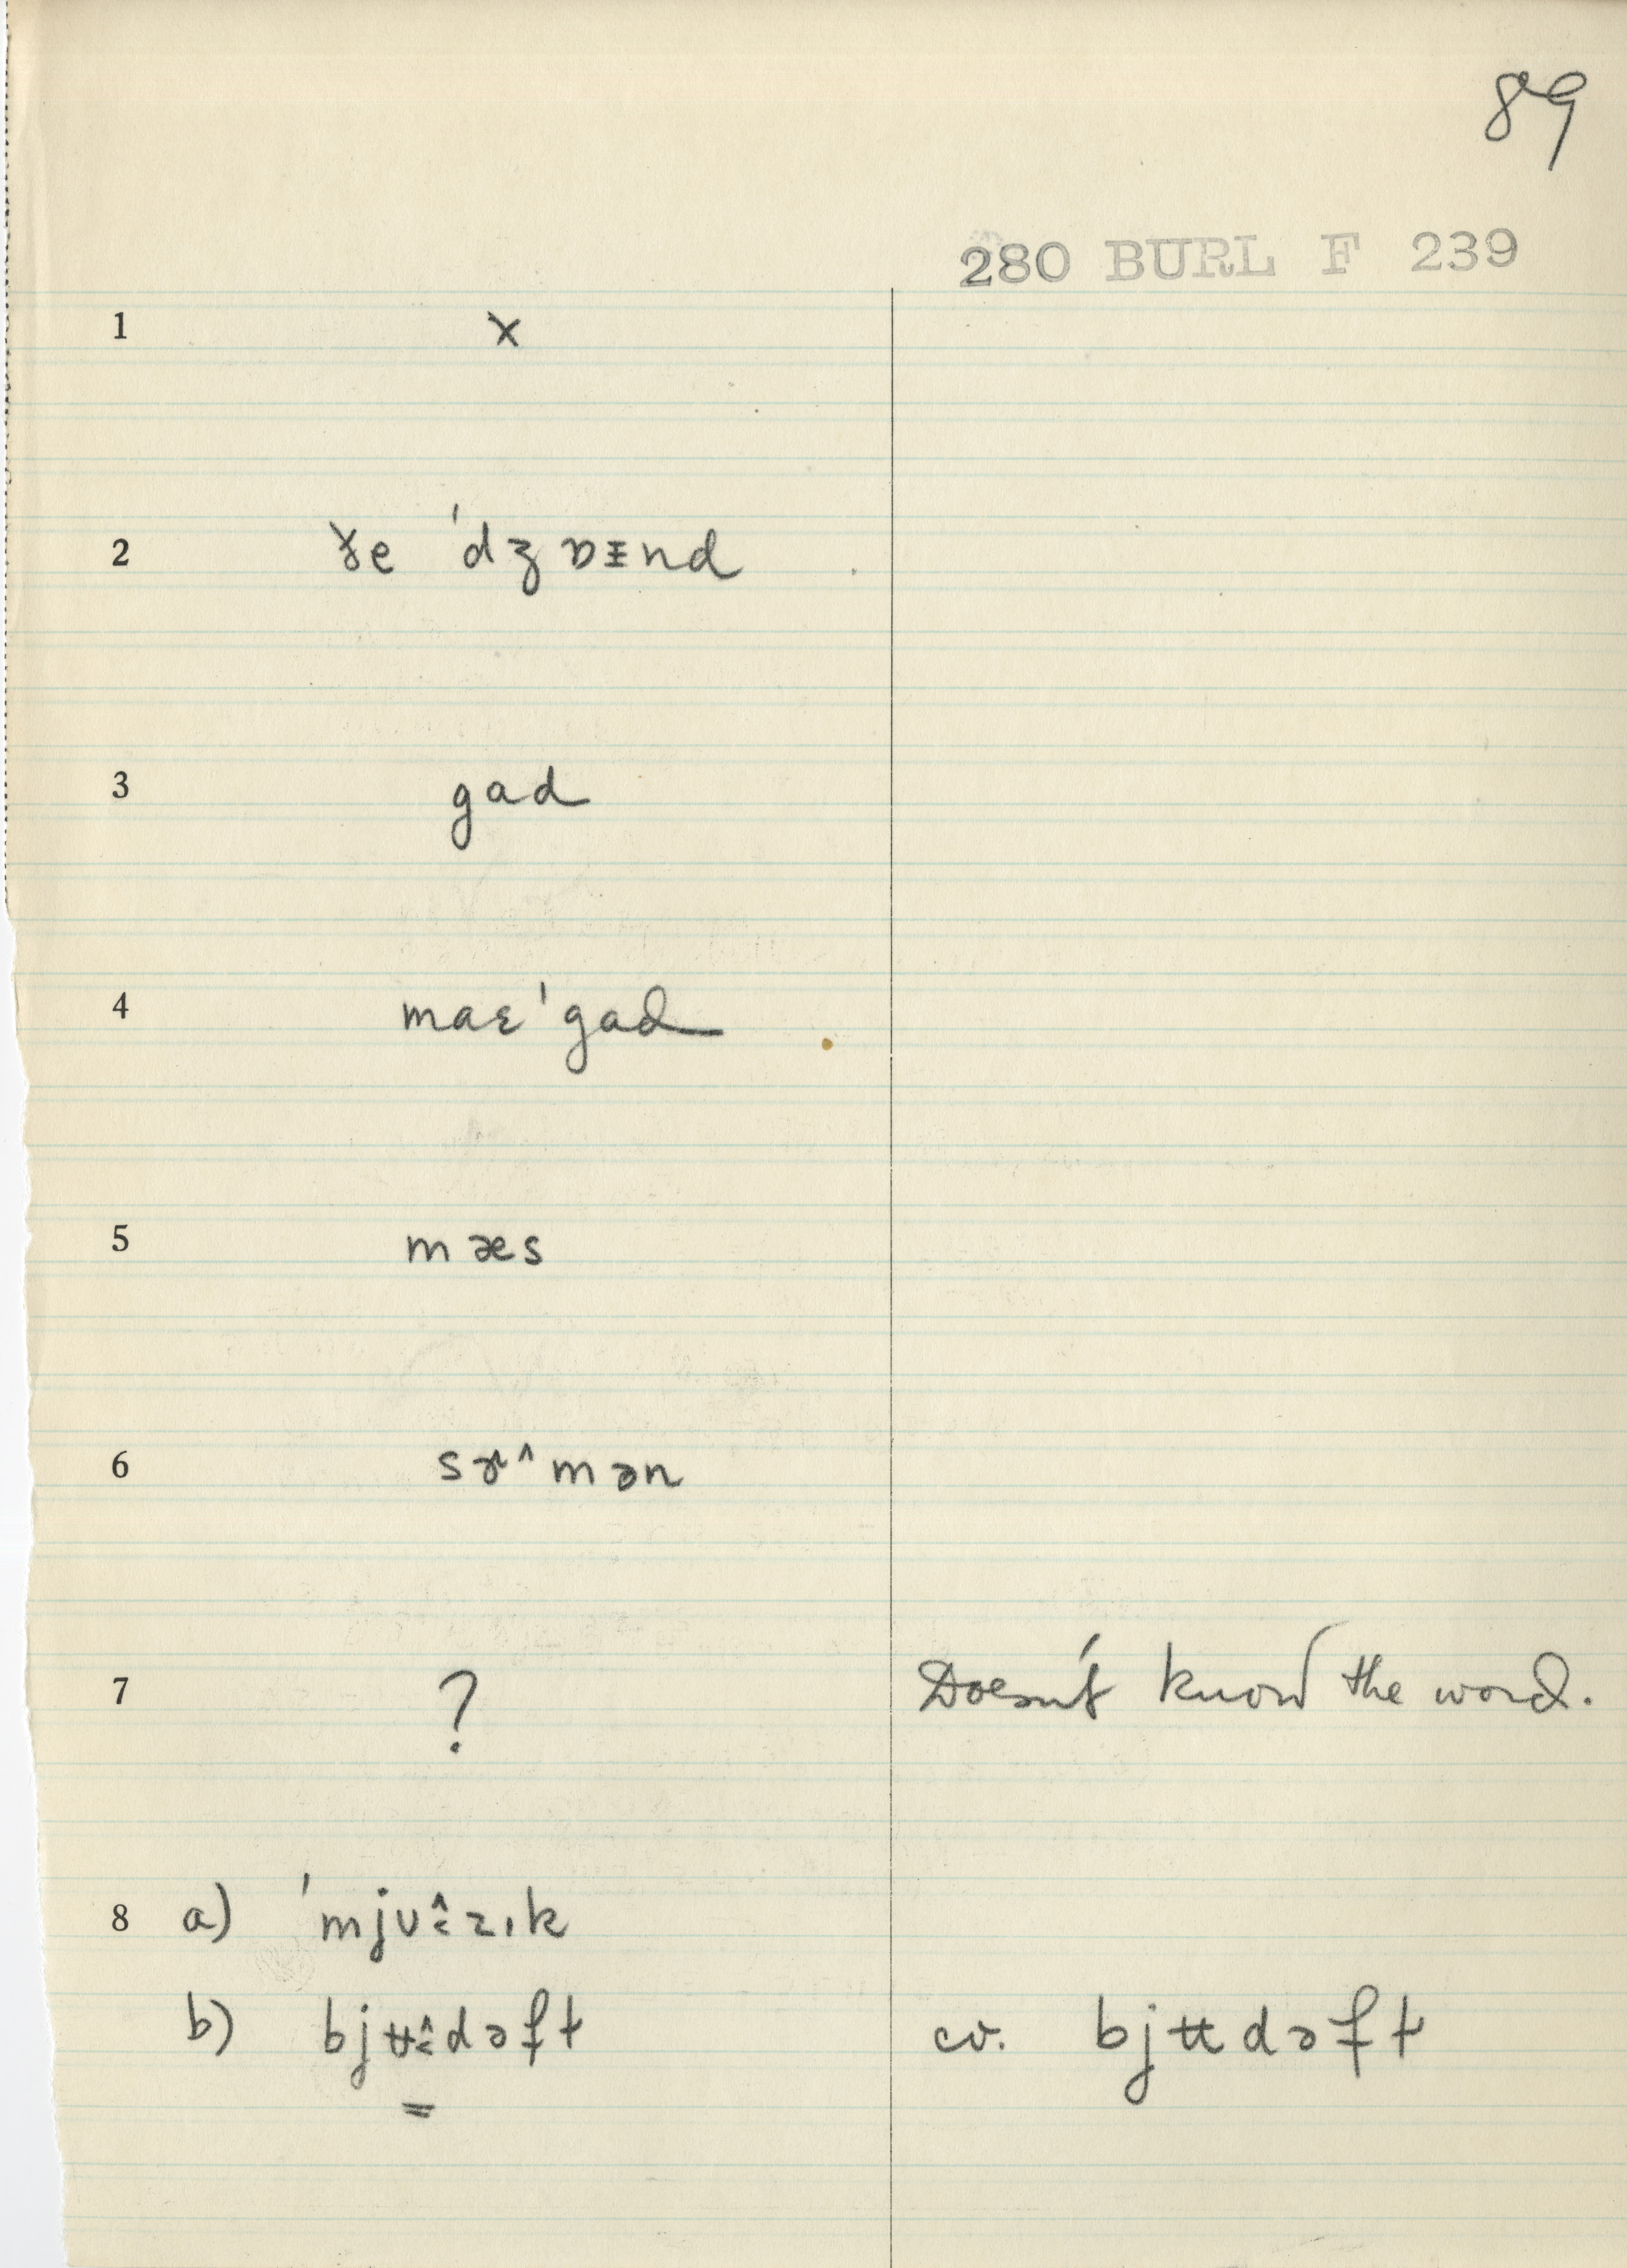 89
280 BURL F 239
1 x
2 ɤ̵e ˈdʒɒᵻnd
3 gad
4 maɛˈgad
5 mæs
6 sɚ^mən
7 ? Doesn't know the word.
8 a) ˈmjʊ̂zɪk
b) bjʉ̂dəft cv. bjʉdəft